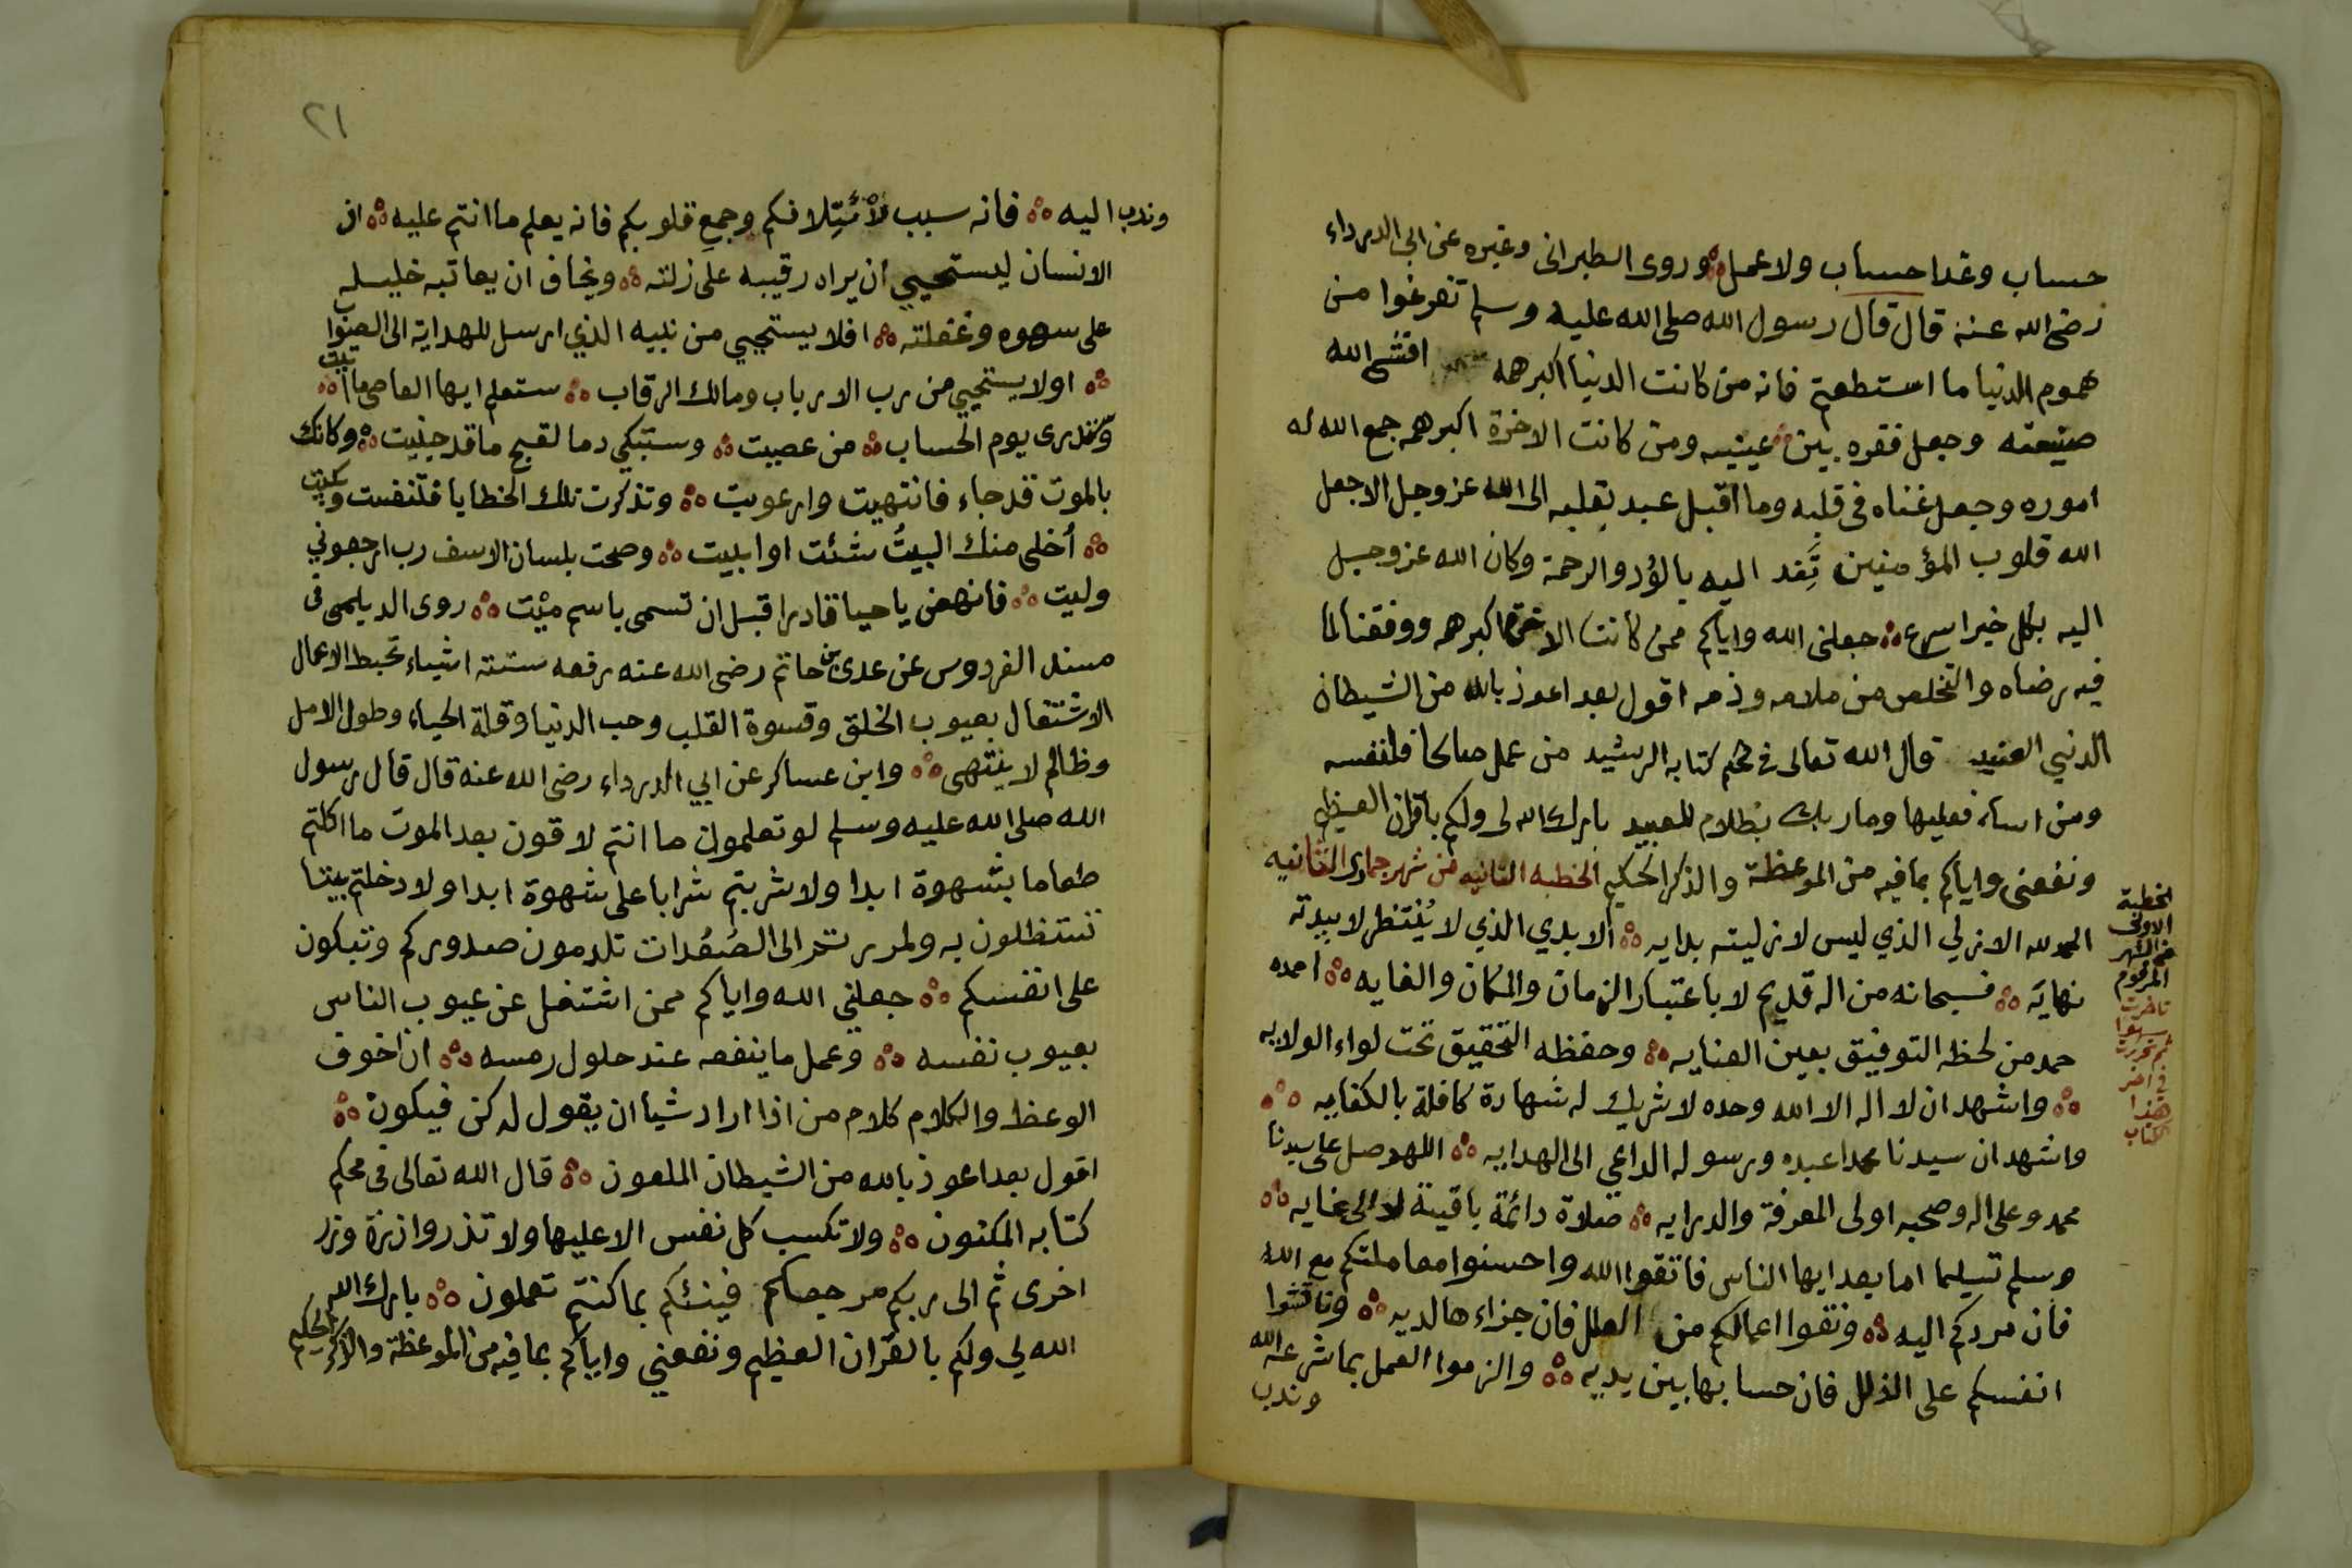 حساب وغدا حساب ولا عمل وروى الطبرانى وغيره عن ابى الدرداء
رضى الله عنه قال قال رسول الله صلى الله عليه وسلم تفرغوا من
هموم الدنيا ما استطعتم فانه من كانت الدنيا اكبر همه افشى الله
ضيعته وجعل فقره بين عينيه ومن كانت الاخرة اكبر همه جمع الله له
اموره وجعل غناه فى قلبه وما اقبل عبد بقلبه الى الله عز وجل الا جعل
الله قلوب المؤمنين تَفِد اليه بالوُد والرحمة وكان الله عز وجل
اليه بكل خير اسرع جعلنى الله واياكم ممن كانت الاخرة اكبر همه ووفقنا لما
فيه رضاه والتخلص من ملامه وذمه اقول بعد اعوذ بالله من الشيطان
الدنيي العنيد قال الله تعالى فى محكم كتابه الرشيد من عمل صالحا فلنفسه
ومن اساء فعليها وما ربك بظلام للعبيد بارك الله لى ولكم بالقران العظيم
ونفعنى واياكم بما فيه من الموعظة والذكر الحكيم الخطبه الثانيه من شهر جمادى الثانيه
الحمد لله الازلي الذي ليس لازليته بدايه الابدي الذي لا يُنتظر لابديته
نهاية فسبحانه من اله قديم لا باعتبار الزمان والمكان والغايه احمده
حمد من لحظه التوفيق بعين العنايه وحفظه التحقيق تحت لواء الولايه
واشهد ان لا اله الا الله وحده لا شريك له شهادة كافلة بالكفايه
واشهد ان سيدنا محمدا عبده ورسوله الداعي الى الهدايه اللهم صل على سيدنا
محمد وعلى اله وصحبه اولى المعرفة والدرايه صلاة دائمة باقية لا الى غايه
وسلم تسليما اما بعد ايها الناس فاتقوا الله واحسنوا معاملتكم مع الله
فان مردكم اليه ونقوا اعمالكم من العلل فان جزاءها لديه وناقشوا
انفسكم على الذلل فان حسابها بين يديه والزموا العمل بما شرعه الله
وندب
الخطبة
الاولى
من الشهر
المرقوم
تاخرت
سهوا
ثم تحررت
فى اخر
هذا
الكتاب
٢١
وندب اليه فانه سبب لأئتِلافكم وجمع قلوبكم فانه يعلم ما انتم عليه ان
الانسان ليستحيي ان يراه رقيبه على زلته ويخاف ان يعاتبه خليله
على سهوه وغفلته افلا يستحيي من نبيه الذي ارسل للهداية الى الصواب
اولا يستحيي من رب الارباب ومالك الرقاب ستعلم ايها العاصى ما اتيت
وتدرى يوم الحساب من عصيت وستبكي دما لقبح ما قد جنيت وكانك
بالموت قد جاء فانتهيت وارعويت وتذكرت تلك الخطايا فتنفست وبكيت
أخلى منك البيتُ شئت او ابيت وصحت بلسان الاسف رب ارجعوني
وليت فانهض يا حيا قادرا قبل ان تسمى باسم ميْت روى الديلمى فى
مسند الفردوس عن عدى بن حاتم رضى الله عنه رفعه ستة اشياء تحبط الاعمال
الاشتغال بعيوب الخلق وقسوة القلب وحب الدنيا وقلة الحياء وطول الامل
وظالم لا ينتهى وابن عساكر عن ابي الدرداء رضى الله عنه قال قال رسول
الله صلى الله عليه وسلم لو تعلمون ما انتم لاقون بعد الموت ما اكلتم
طعاما بشهوة ابدا ولا شربتم شرابا على شهوة ابدا ولا دخلتم بيتا
تستظلون به ولمررتم الى الصُعُدات تلدمون صدوركم وتبكون
على انفسكم جعلني الله واياكم ممن اشتغل عن عيوب الناس
بعيوب نفسه وعمل ما ينفعه عند حلول رمسه ان اخوف
الوعظ والكلام كلام من اذا اراد شيا ان يقول له كن فيكون
اقول بعد اعوذ بالله من الشيطان الملعون قال الله تعالى فى محكم
كتابه المكنون ولا تكسب كل نفس الا عليها ولا تذر وازرة وزر
اخرى ثم الى ربكم مرجعكم فينبئكم بما كنتم تعملون بارك الله
الله لي ولكم بالقران العظيم ونفعني واياكم بما فيه من الموعظة والذكر الحكيم